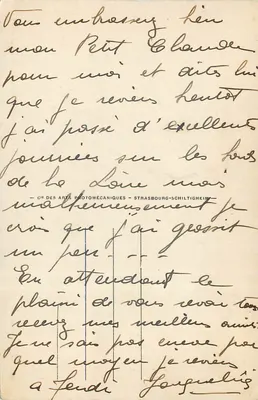 Vous embrassez bien
mon Petit Claude
pour moi et dites lui
que je reviens bientot
j'ai passé d'excellents
journées sur les bords
de la Loire mais
Cie DES ARTS PHOTOMÉCANIQUES - STRASBOURG-SCHILTIGHEIM
malheureusement je
crois que j'ai grossit
un peu - . - .
En attendant le
plaisir de vous revoir tous
recevez mes meilleurs amitiés
Je ne sais pas encore par
quel moyen je reviens
a Jeudi Jacqueline